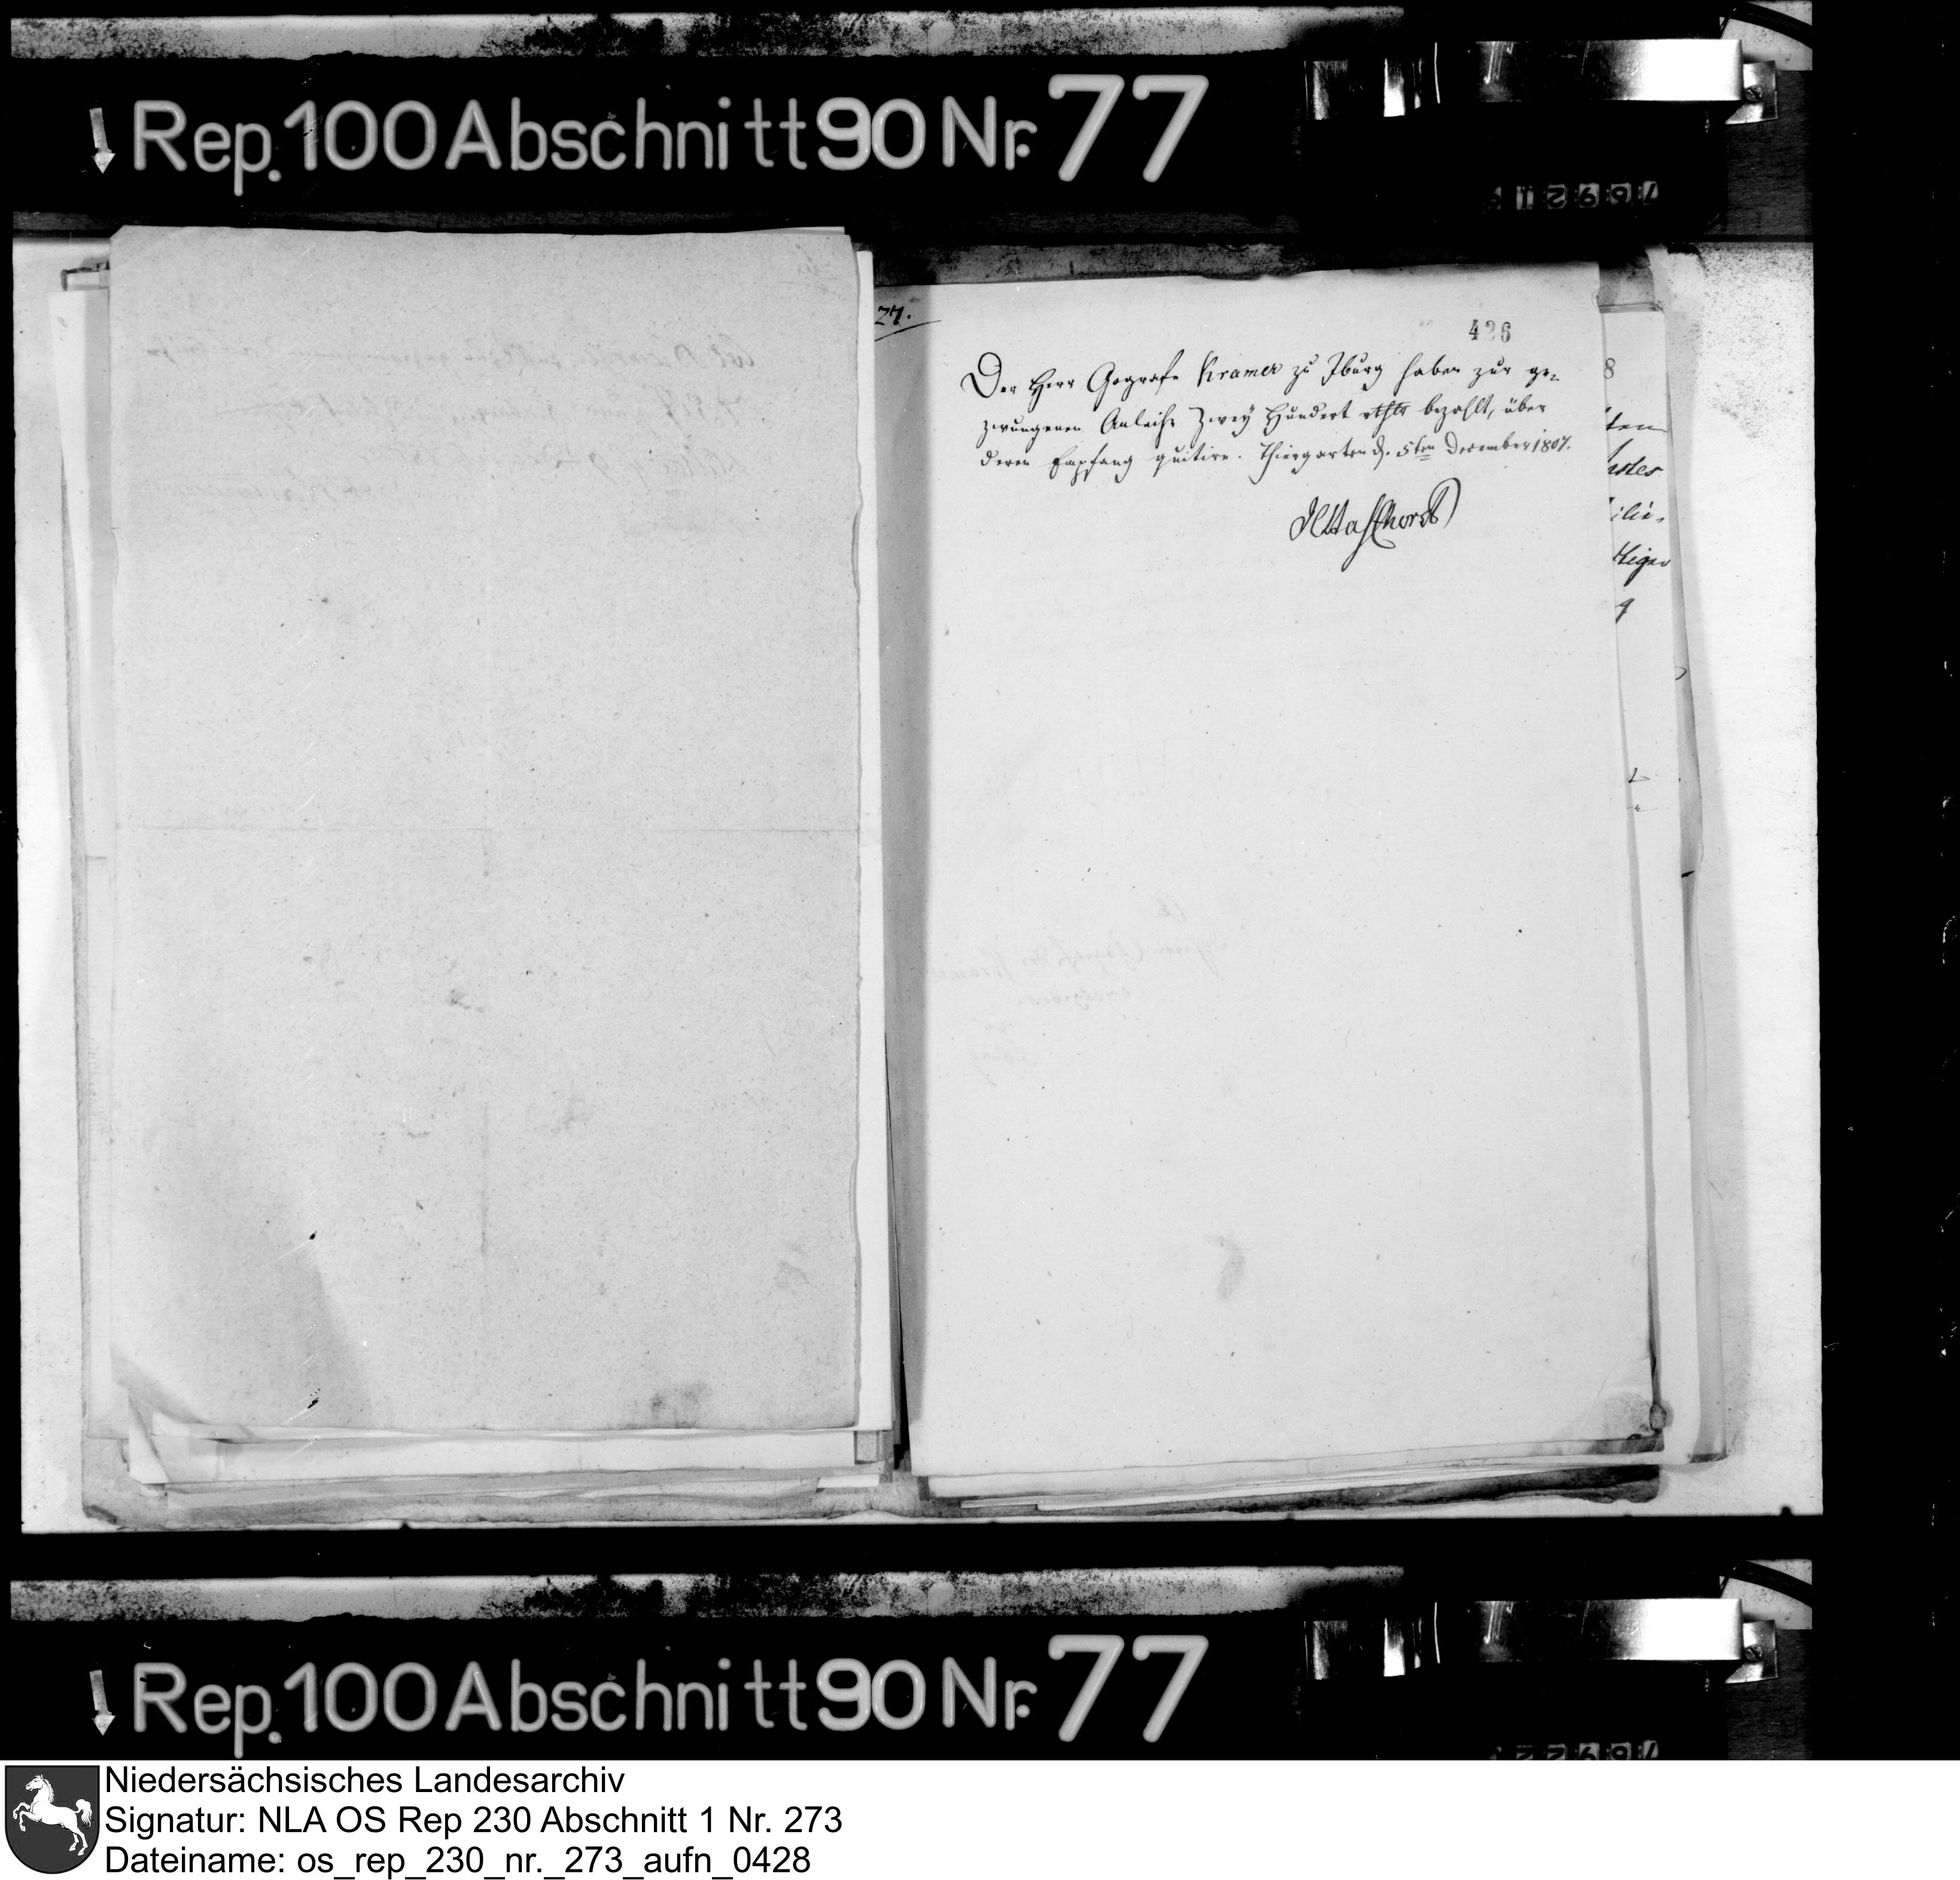 Rep. 100 Abschnitt 90 Nr. 77
27.
426
Der Herr Gografe Kramer zu Iburg haben zur ge-
zwungenen Anleihe Zwey Hundert rthlr bezahlt, über
deren Empfang quitire. Thiergarten d. 5ten December 1807.
8
ten
ndes
ilii-
tiger
g
Rep. 100 Abschnitt 90 Nr. 77
Niedersächsisches Landesarchiv
Signatur: NLA OS Rep 230 Abschnitt 1 Nr. 273
Dateiname: os_rep_230_nr._273_aufn_0428